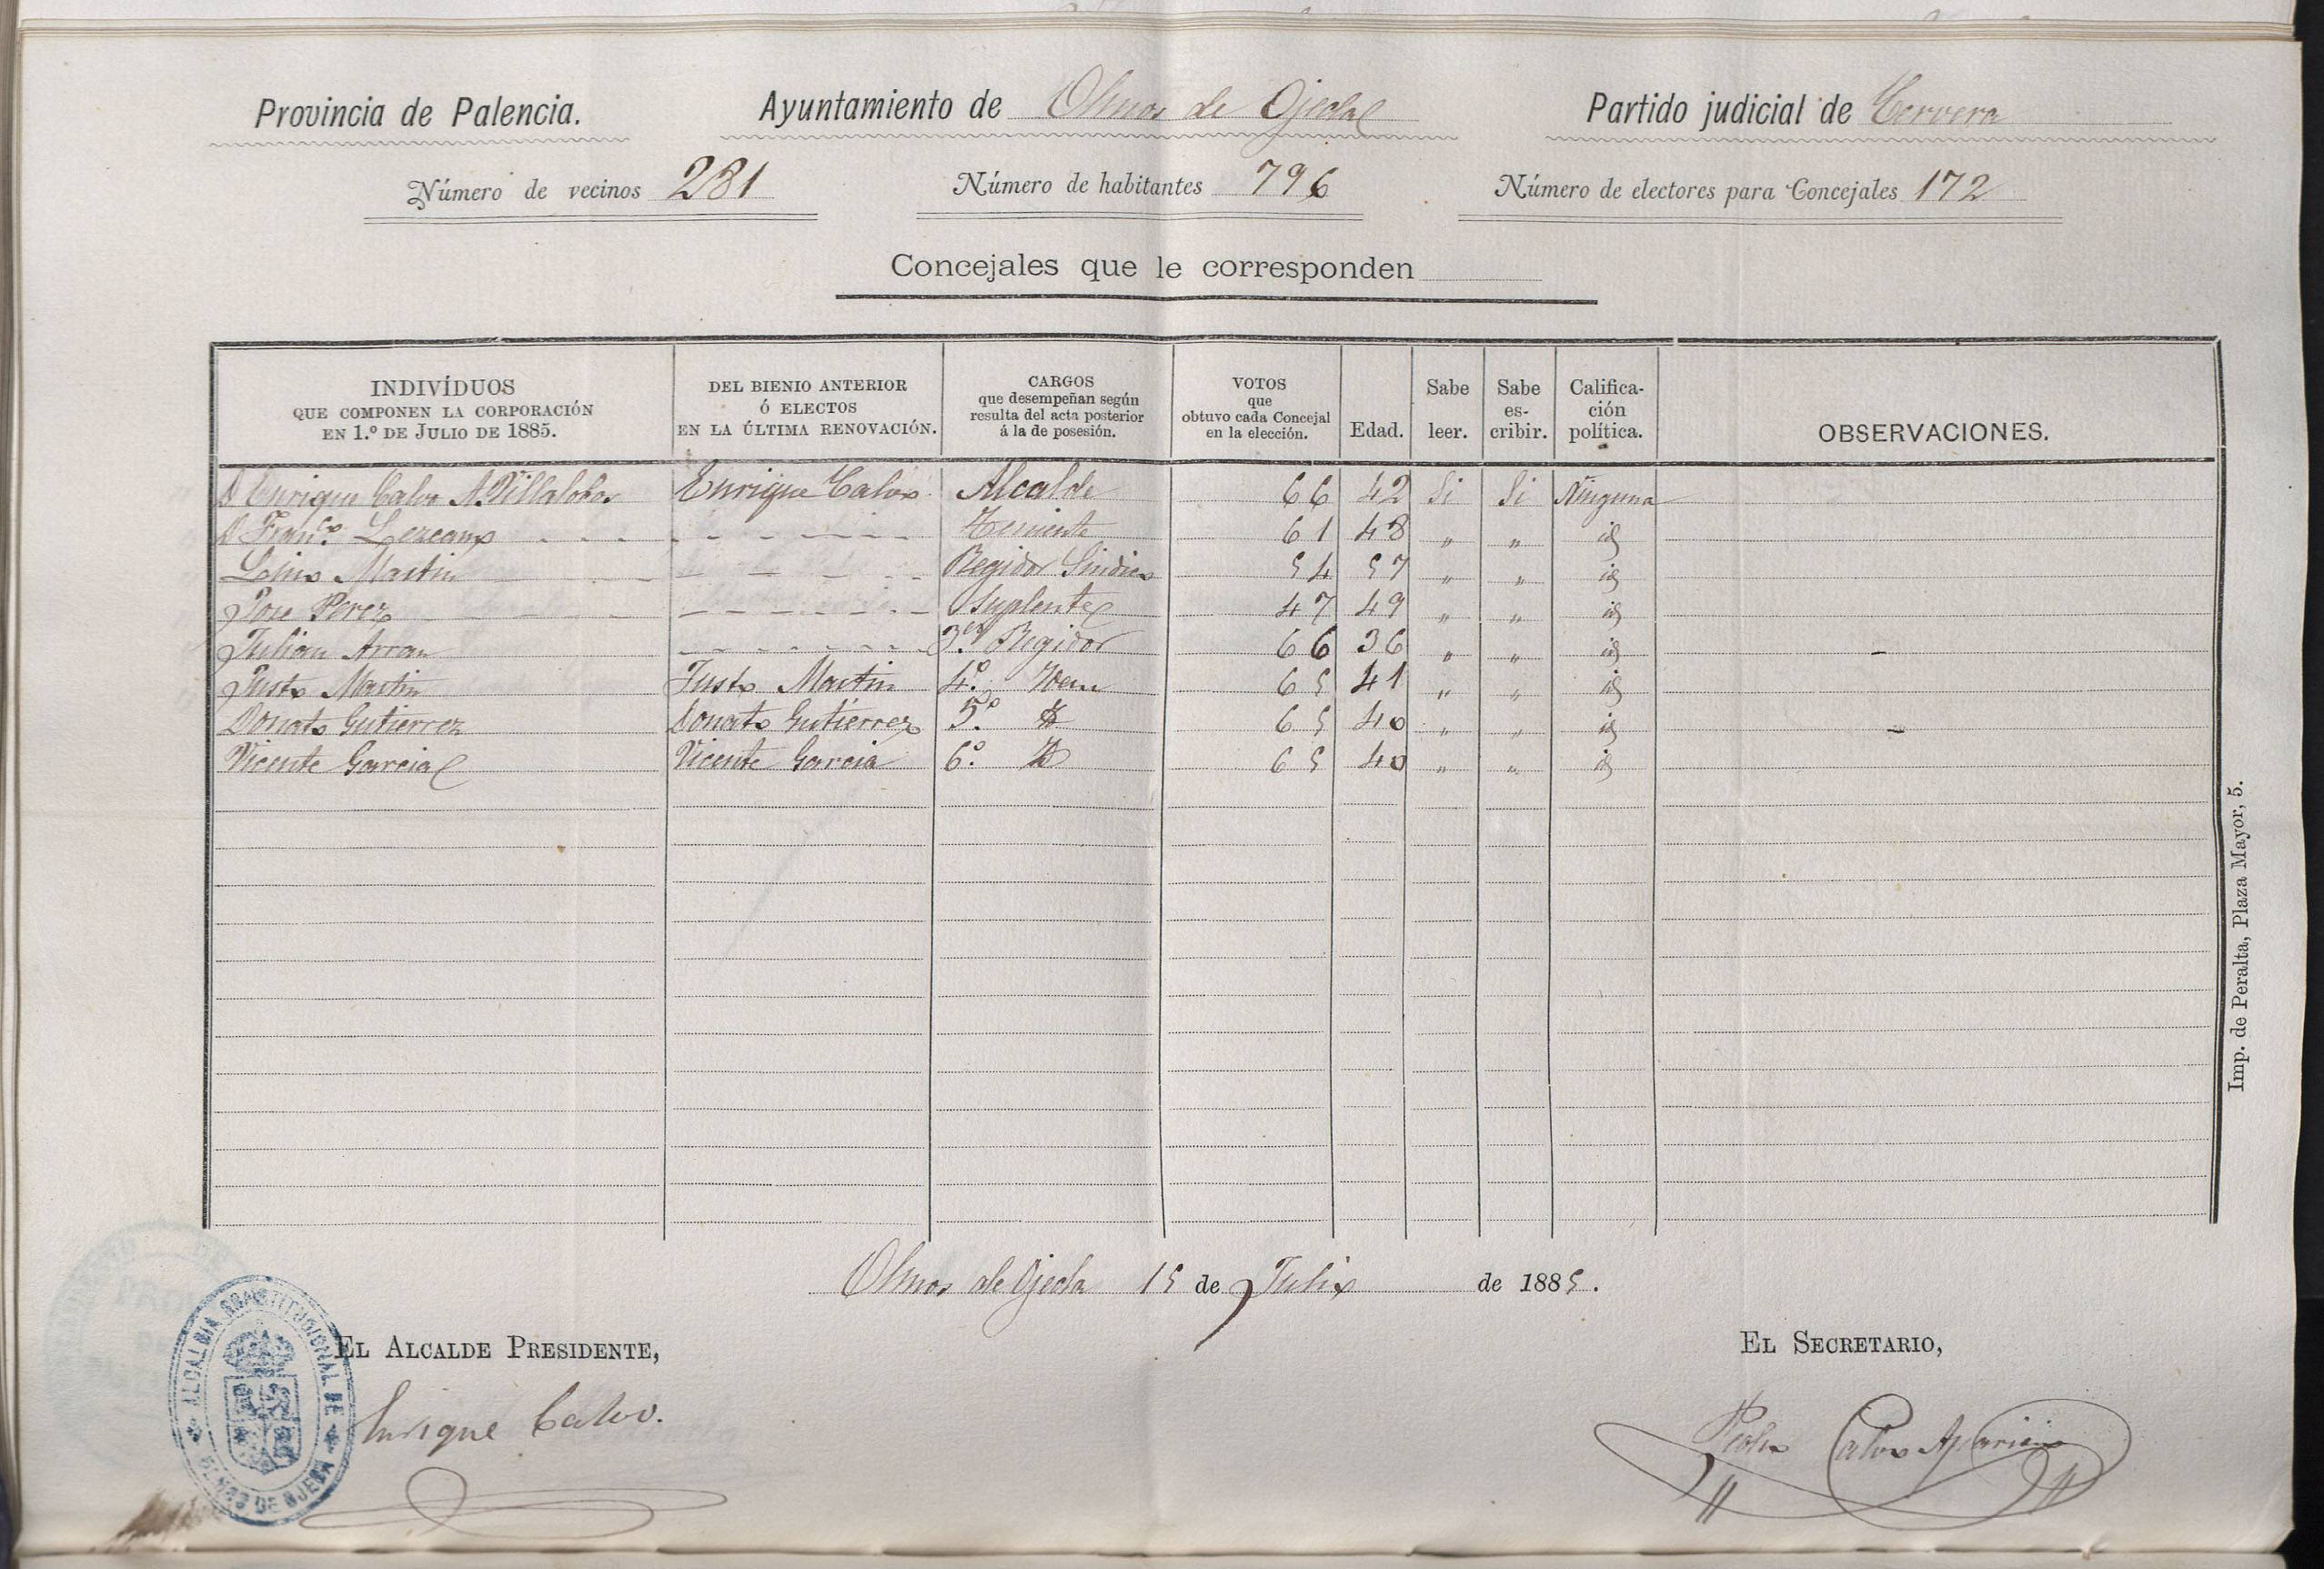 Provincia de Palencia. Ayuntamiento de Olmos de Ojeda Partido judicial de Cervera
Número de vecinos 281 Número de habitantes 796 Número de electores para Concejales 172
Concejales que le corresponden
INDIVÍDUOS QUE COMPONEN LA CORPORACIÓN EN 1.º DE JULIO DE 1885. DEL BIENIO ANTERIOR Ó ELECTOS EN LA ÚLTIMA RENOVACIÓN. CARGOS que desempeñan según resulta del acta posterior á la de posesión. VOTOS que obtuvo cada Concejal en la elección. Edad. Sabe leer. Sabe es-cribir. Califica-ción política. OBSERVACIONES.
D Enrique Calvo A. Villalobos Enrique Calvo Alcalde 66 42 Si Si Ninguna
D Franco. Lezcano - - - - - - - - - Teniente 61 48 " " id
Martin - - - - - - Regidor Sindico 54 57 " " id
Jose Perez - - - - - - - - - Suplente 47 49 " " id
Julian Arran - - - - - - - 3er Regidor 66 36 " " id -
Justo Martin Justo Martin 4º. Idem 65 41 " " id
Donato Gutierrez Donato Gutierrez 5º. Id 65 40 " " id -
Vicente Garcia Vicente Garcia 6º. Id 65 40 " " id
Imp. de Peralta, Plaza Mayor, 5.
Olmos de Ojeda 15 de Julio de 1885.
EL ALCALDE PRESIDENTE, EL SECRETARIO,
Enrique Calvo. Pedro Calvo Aparicio
ALCALDIA CONSTITUCIONAL DE OLMOS DE OJEDA